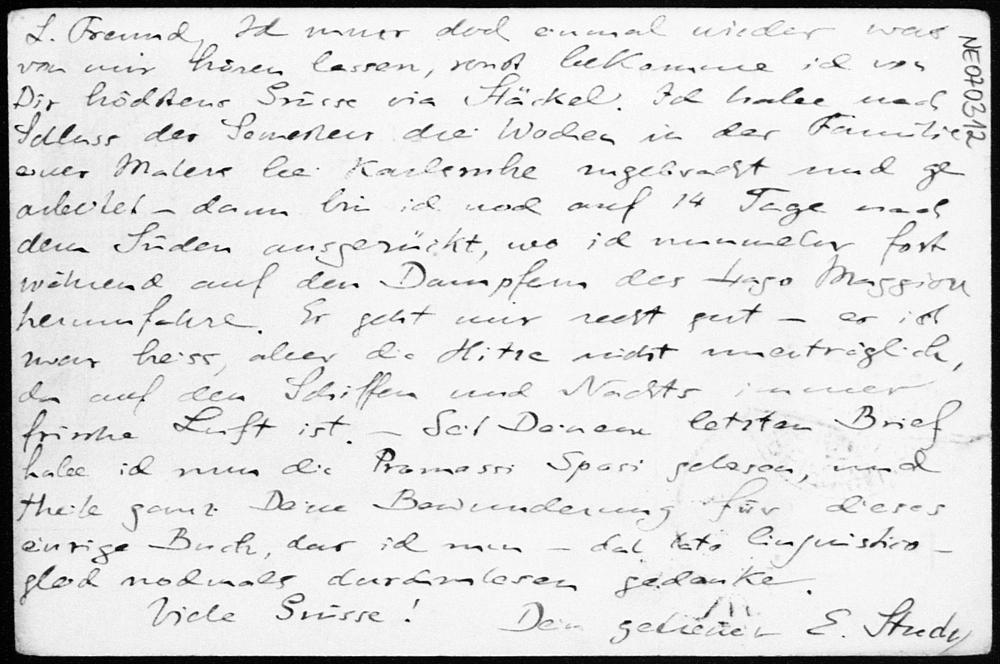 L. Freund, Ich muss doch einmal wieder was
von mir hören lassen, sonst bekomme ich von
Dir höchstens Grüsse via Stäckel. Ich habe nach
Schluss des Semesters drei Wochen in der Familie
eines Malers bei Karlsruhe zugebracht und ge
arbeitet – dann bin ich noch auf 14 Tage nach
dem Süden ausgerückt, wo ich nunmehr fort
während auf den Dampfern des Lago Maggiore
herumfahre. Es geht mir recht gut – es ist
zwar heiss, aber die Hitze nicht unerträglich,
da auf den Schiffen und Nachts immer
frische Luft ist. – Seit Deinem letzten Brief
habe ich nun die Promessi Sposi gelesen, und
theile ganz Deine Bewunderung für dieses
einzige Buch, das ich nun – dal lato linguistico –
gleich nochmals durchzulesen gedenke.
Viele Grüsse!
Dein getreuer E. Study
NE070312